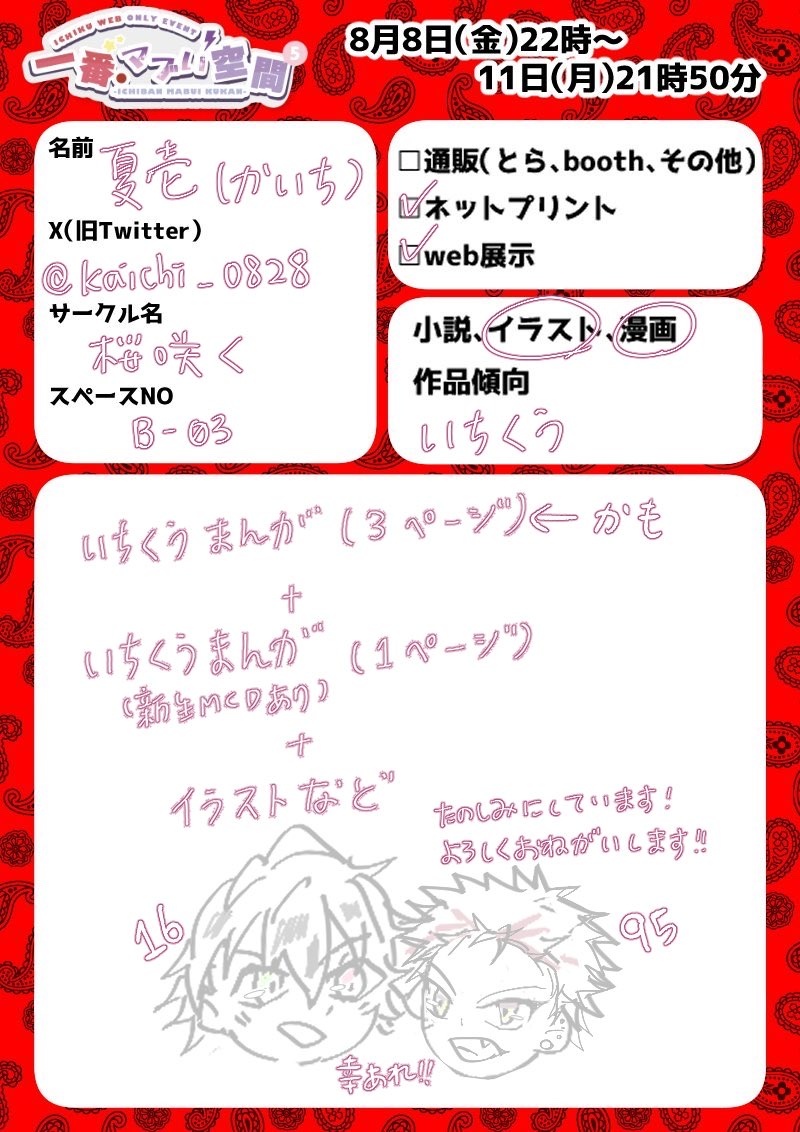 ICHIKU WEB ONLY EVENT
一番、マブい空間5
-ICHIBAN MABUI KUKAN-
8月8日(金)22時～
11日(月)21時50分
名前
夏壱(かいち)
X(旧Twitter)
@kaichi_0828
サークル名
桜咲く
スペースNO
B-03
□通販(とら、booth、その他)
☑ネットプリント
☑web展示
小説、イラスト、漫画
作品傾向
いちくう
いちくうまんが(3ページ)←かも
+
いちくうまんが(1ページ)
(新生MCDあり)
+
イラストなど
たのしみにしています!
よろしくおねがいします!!
16
95
幸あれ!!